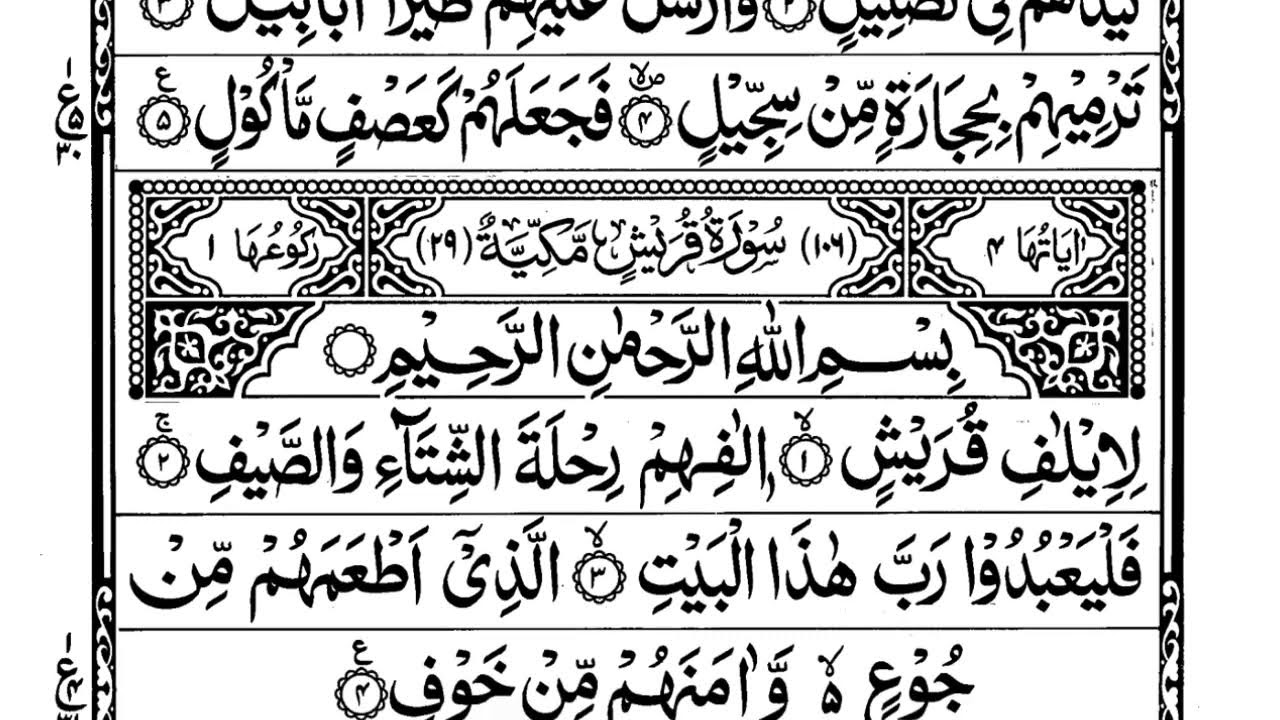 كَيْدَهُمْ فِيْ تَضْلِيْلٍ ۙ‏﴿۲﴾ وَّاَرْسَلَ عَلَيْهِمْ طَيْرًا اَبَابِيْلَ ۙ‏﴿۳﴾
تَرْمِيْهِمْ بِحِجَارَةٍ مِّنْ سِجِّيْلٍ ۙ‏﴿۴﴾ فَجَعَلَهُمْ كَعَصْفٍ مَّاْكُوْلٍ ﴿۵﴾ ع
اٰيَاتُهَا ۴ (۱۰۶) سُوْرَةُ قُرَيْشٍ مَّكِّيَّةٌ (۲۹) رُكُوْعُهَا ۱
بِسْمِ اللّٰهِ الرَّحْمٰنِ الرَّحِيْمِ
لِاِيْلٰفِ قُرَيْشٍ ۙ‏﴿۱﴾ اٖلٰفِهِمْ رِحْلَةَ الشِّتَآءِ وَالصَّيْفِ ۚ‏﴿۲﴾
فَلْيَعْبُدُوْا رَبَّ هٰذَا الْبَيْتِ ۙ‏﴿۳﴾ الَّذِيْٓ اَطْعَمَهُمْ مِّنْ
جُوْعٍ ۙ۵ وَّاٰمَنَهُمْ مِّنْ خَوْفٍ ﴿۴﴾ ع